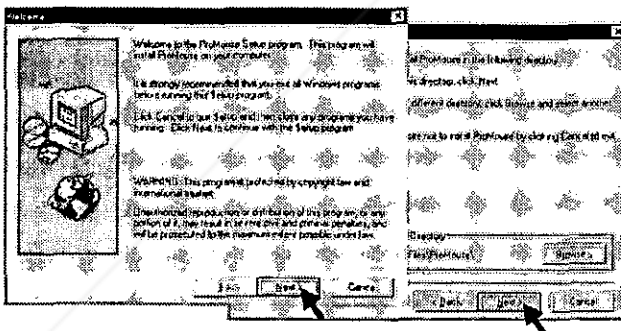 Welcome
Welcome to the ProMouse Setup program. This program will
install ProMouse on your computer.
It is strongly recommended that you exit all Windows programs
before running this Setup program.
Click Cancel to quit Setup and then close any programs you have
running. Click Next to continue with the Setup program.
WARNING: This program is protected by copyright law and
international treaties.
Unauthorized reproduction or distribution of this program, or any
portion of it, may result in severe civil and criminal penalties, and
will be prosecuted to the maximum extent possible under law.
Next >
Cancel
ProMouse in the following directory.
directory, click Next.
different directory, click Browse and select another
not to install ProMouse by clicking Cancel to exit
Directory
Files\ProMouse
Browse...
< Back
Next >
Cancel